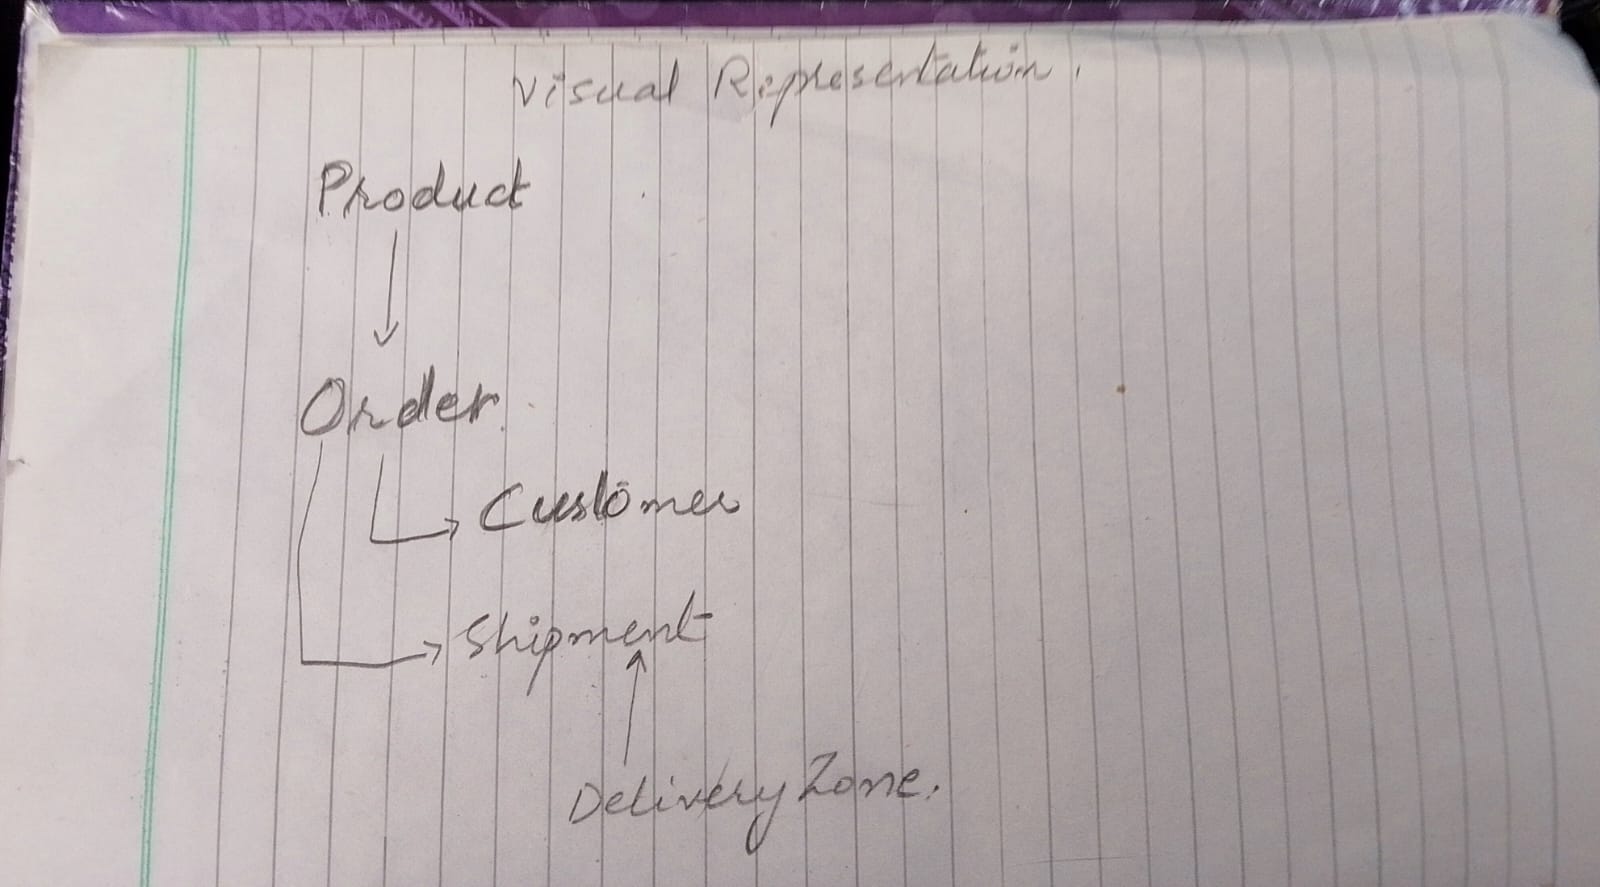 Visual Representation.
Product
Order
Customer
Shipment
Delivery Zone.